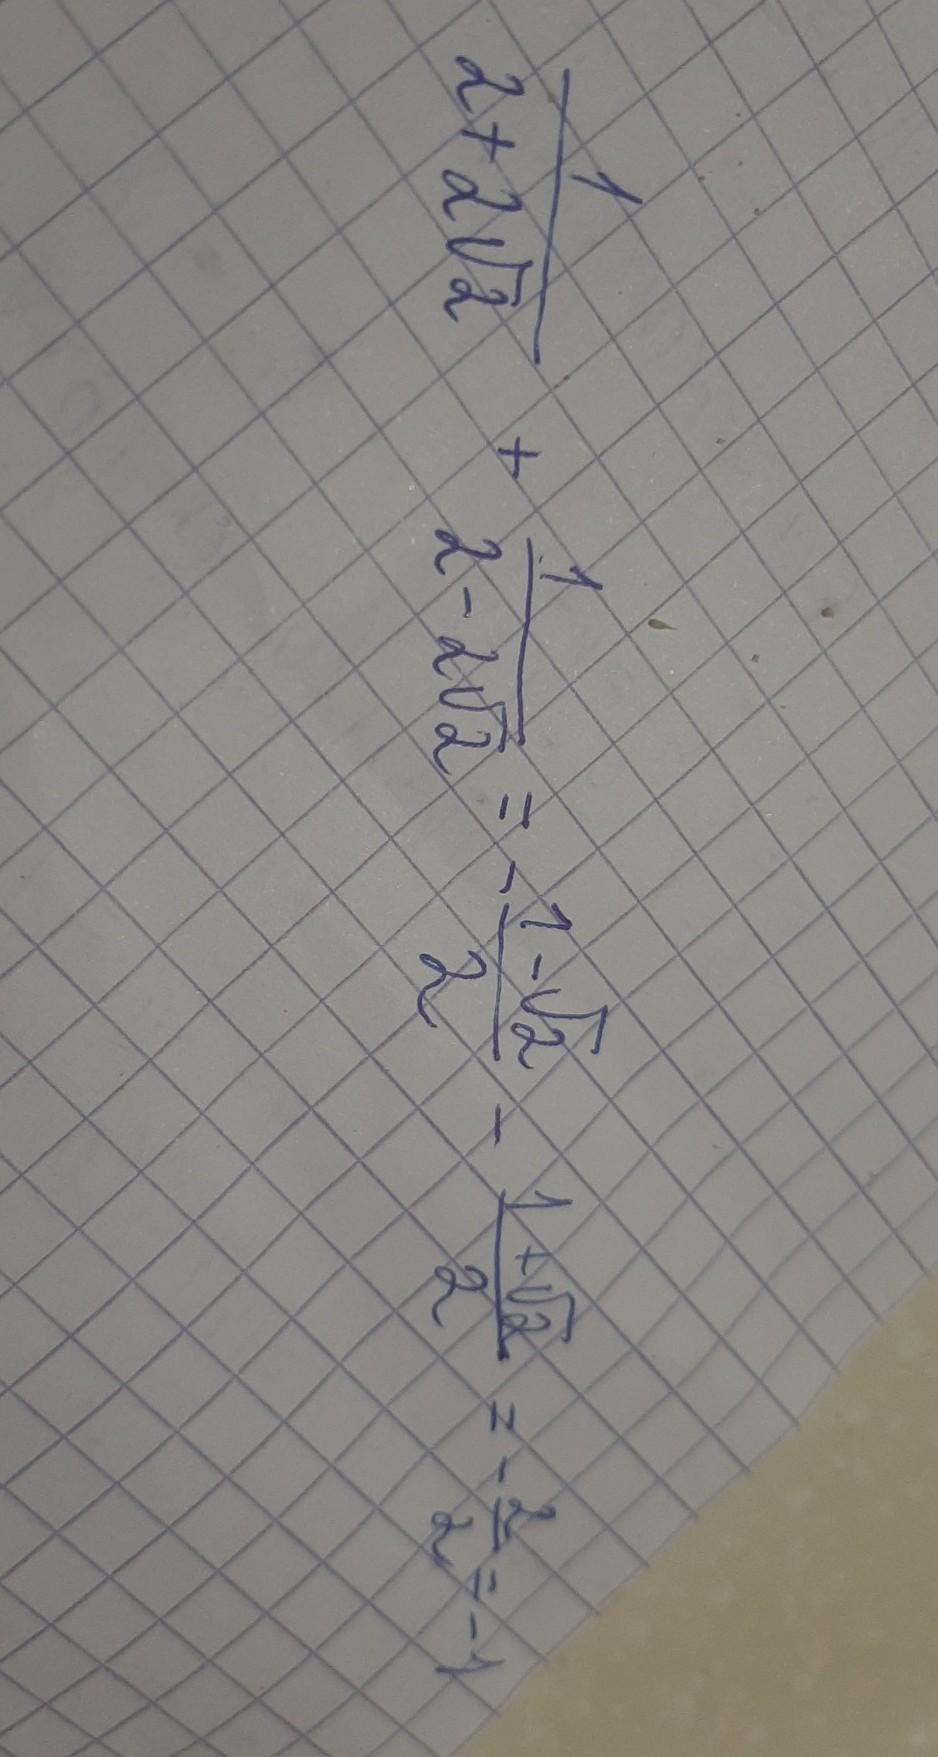 1/(2+2√2) + 1/(2-2√2) = - (1-√2)/2 - (1+√2)/2 = - 2/2 = -1